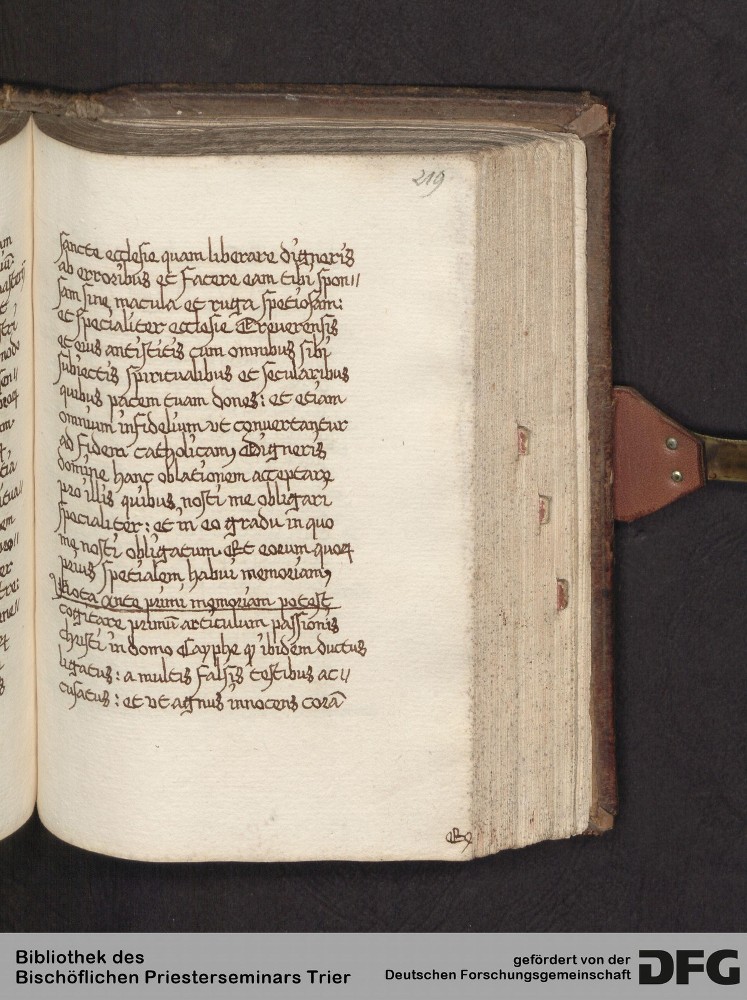 219
sancte ecclesie quam liberare digneris
ab erroribus et facere eam tibi spon//
sam sine macula et ruga spetiosam:
et specialiter ecclesie Treverensis
et eius antistitis cum omnibus sibi
subiectis spiritualibus et secularibus
quibus pacem tuam dones: et etiam
omnium infidelium vt convertantur
ad fidem catholicam, Digneris
domine hanc oblationem acceptare
pro illis quibus nosti me obligari
specialiter: et in eo gradu in quo
me nosti obligatum. Et eorum quorꝝ
prius spetialem habui memoriam,
Nota Ante primi memoriam potest
cogitare primū articulum passionis
christi in domo Cayphe qꝫ ibidem ductus
ligatus: a multis falsis testibus ac//
cusatus: et vt agnus innocens corā
Bibliothek des
Bischöflichen Priesterseminars Trier
gefördert von der
Deutschen Forschungsgemeinschaft
DFG